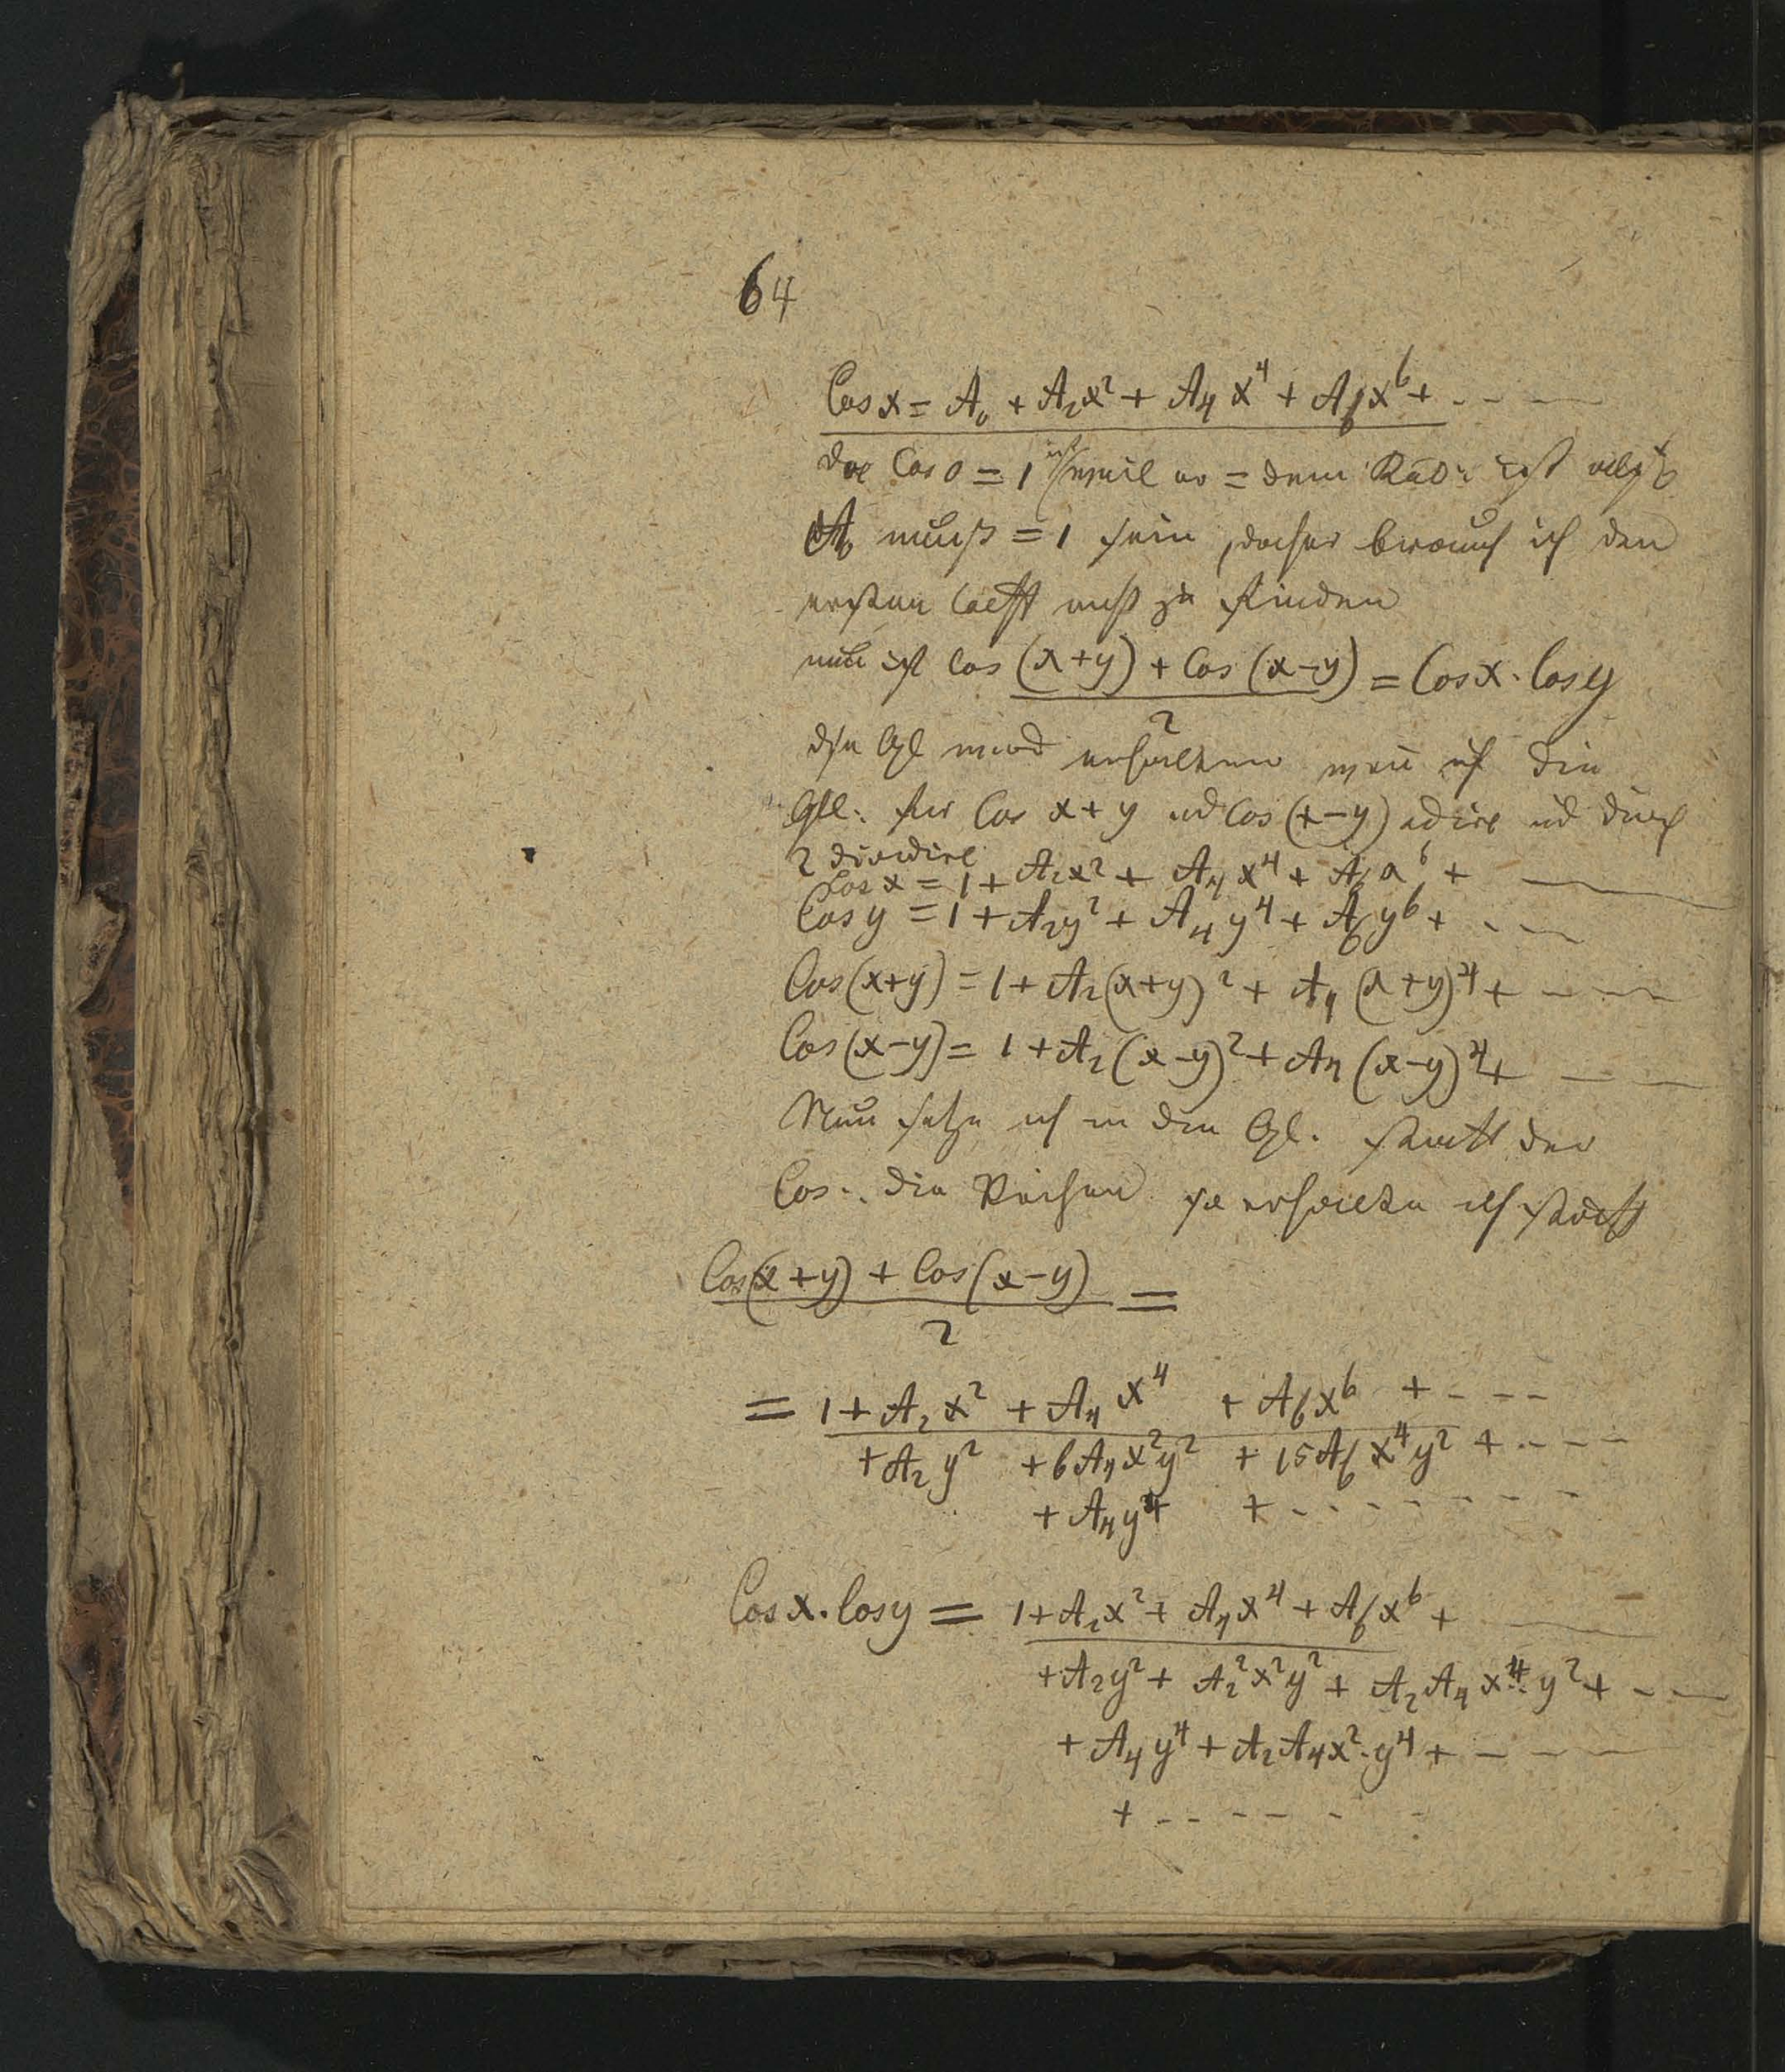 64
Cos x = A₀ + A₂x² + A₄x⁴ + A₆x⁶ + - - -
da Cos 0 = 1 ist weil er = dem Rad: ist also
A₀ muß = 1 sein, daher brauch ich den
ersten Coeff nicht zu finden
nun ist Cos (x+y) + Cos (x-y) = Cos x · Cos y
2
die Gl wird erhalten wen ich die
Gll: für Cos x+y ud Cos (x-y) adire ud durch
2 dividire
Cos x = 1 + A₂x² + A₄x⁴ + A₆x⁶ + - -
Cos y = 1 + A₂y² + A₄y⁴ + A₆y⁶ + - - -
Cos(x+y) = 1 + A₂(x+y)² + A₄(x+y)⁴ + - - -
Cos(x-y) = 1 + A₂(x-y)² + A₄(x-y)⁴ + - -
Nun setze ich in den Gl. statt der
Cos.. die Reihen so erhalte ich statt
Cos(x+y) + Cos(x-y) =
2
= 1 + A₂x² + A₄x⁴ + A₆x⁶ + - - -
+ A₂y² + 6A₄x²y² + 15A₆x⁴y² + - - - -
+ A₄y⁴ + - - - - - - - -
Cos x · Cos y = 1 + A₂x² + A₄x⁴ + A₆x⁶ + - -
+ A₂y² + A₂²x²y² + A₂A₄x⁴·y² + - -
+ A₄y⁴ + A₂A₄x²·y⁴ + - - -
+ - - - - - -